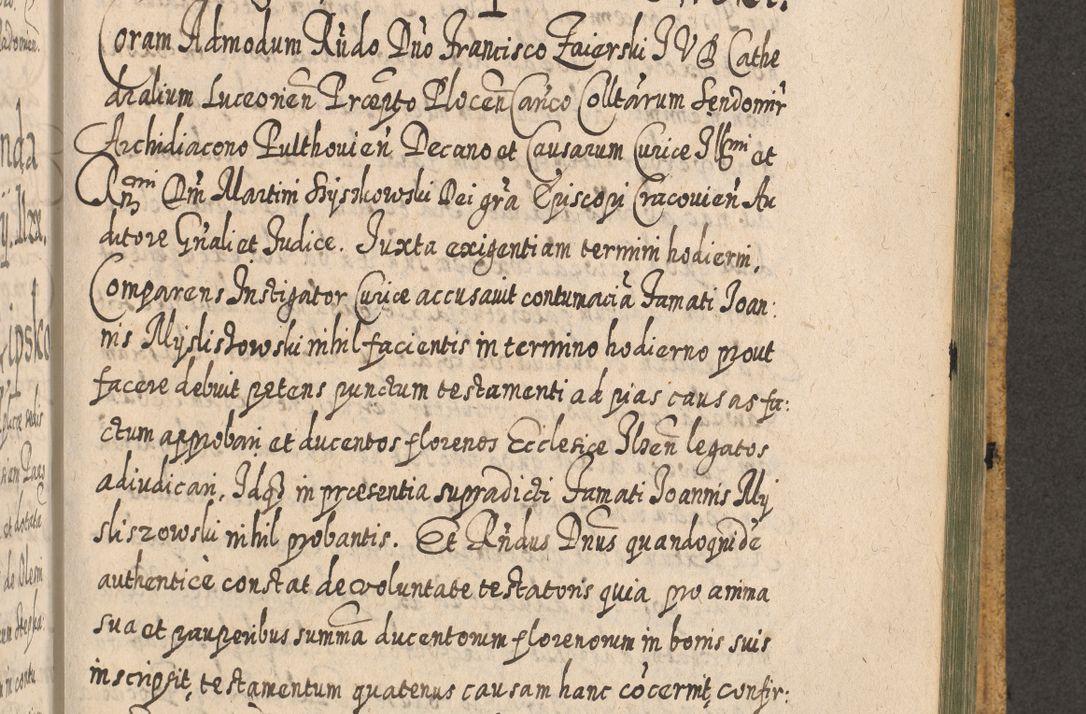 Coram Admodum Rńdo Dńo Francisco Zaierski I V D Cathe
dralium Luceorień Præpto Ploceń Cańco Colltarum Sendomir
Archidiacono Pulthovień Decano et Causarum Curiæ Illmi et
Rmi Dńi Martini Szyszkowski Dei grã Episcopi Cracovień Au
ditore Gńali et Iudice. Iuxta exigentiam termini hodierni,
Comparens Instigator Curiæ accusavit contumaciã Famati Ioan:
nis Mysliszowski nihil facientis in termino hodierno prout
facere debuit petens punctum testamenti ad pias causas fa:
ctum approbari et ducentos florenos Ecclesiæ legatos
adiudicari, Idq in præsentia supradicti Famati Ioannis My
sliszowski nihil probantis. Et Rńdus Dńus quandoquidẽ
authenticè constat de voluntate testatoris quia pro anima
sua et pauperibus summa ducentorum florenorum in bonis suis
inscripsit, testamentum quatenus causam hanc cõcernit, confir: